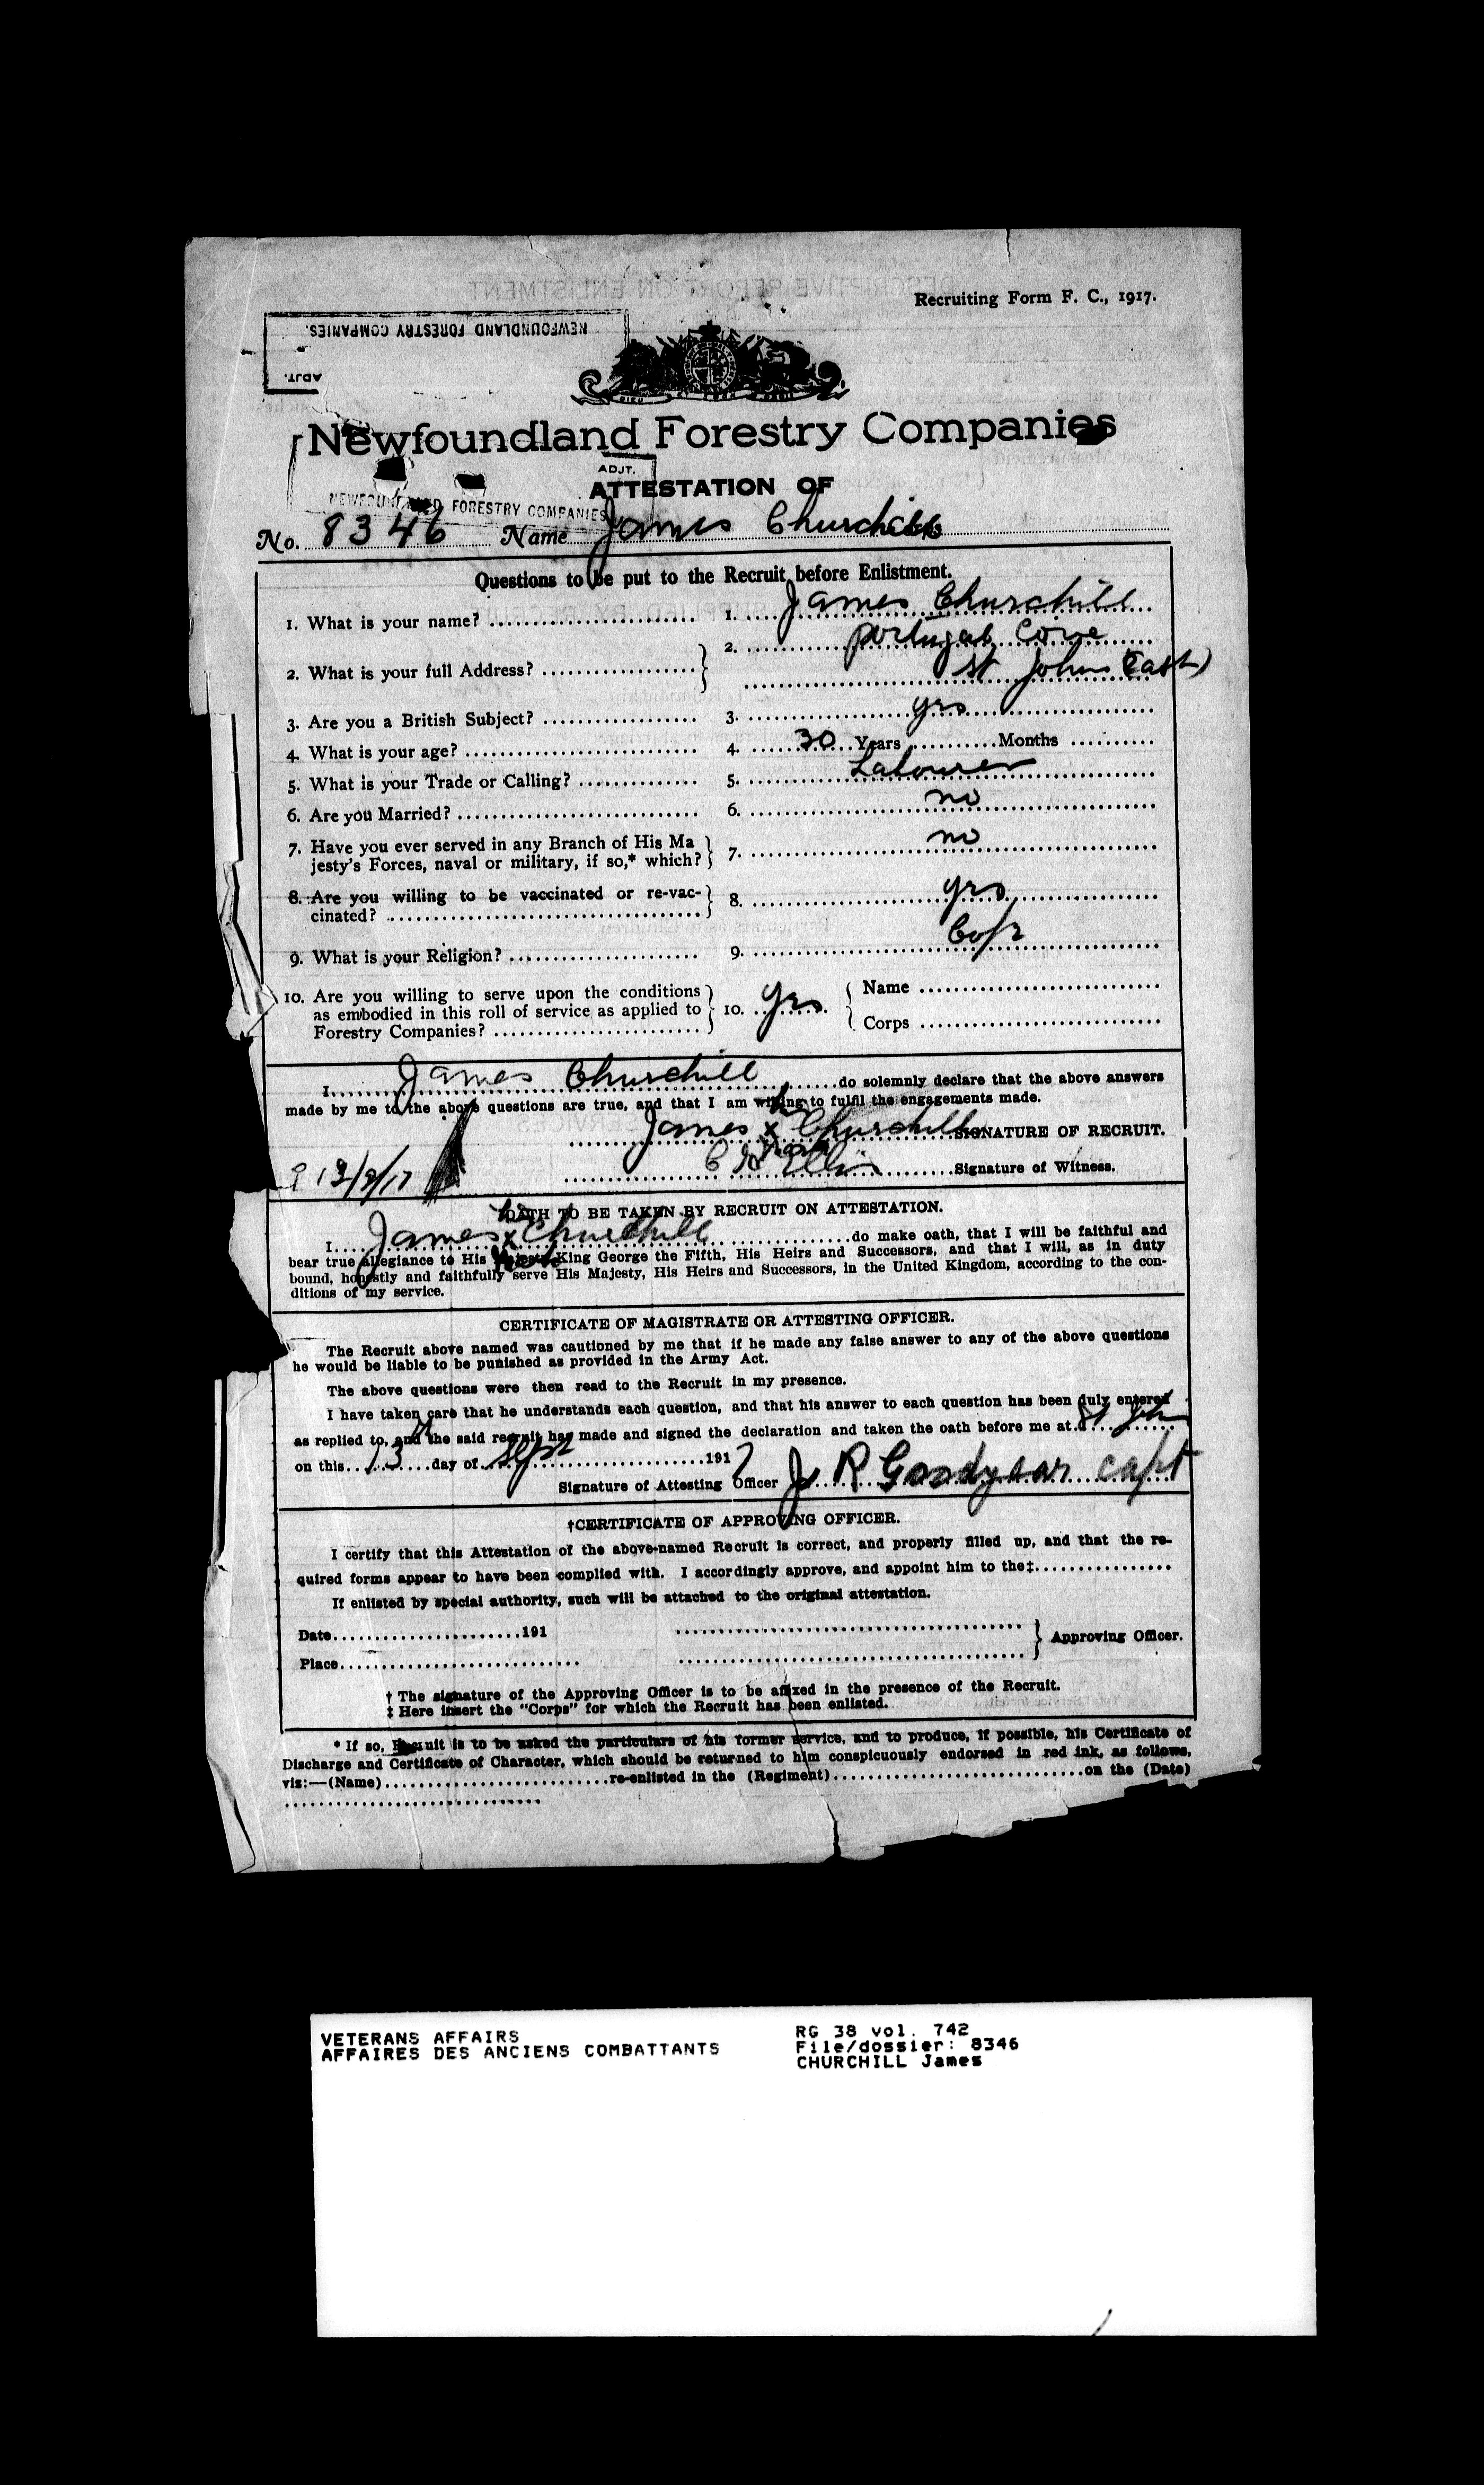 Recruiting Form F. C., 1917.
NEWFOUNDLAND FORESTRY COMPANIES.
ADJT.
DIEU ET MON DROIT
Newfoundland Forestry Companies
ADJT.
ATTESTATION OF
NEWFOUNDLAND FORESTRY COMPANIES
No. 8346 Name James Churchill
Questions to be put to the Recruit before Enlistment.
1. What is your name? 1. James Churchill
2. What is your full Address? 2. Portugal Cove
St Johns East)
3. Are you a British Subject? 3. yes
4. What is your age? 4. 30 Years Months
5. What is your Trade or Calling? 5. Labourer
6. Are you Married? 6. no
7. Have you ever served in any Branch of His Ma
jesty's Forces, naval or military, if so,* which? 7. no
8. Are you willing to be vaccinated or re-vac-
cinated? 8. yes
9. What is your Religion? 9. C of E
10. Are you willing to serve upon the conditions
as embodied in this roll of service as applied to
Forestry Companies? 10. yes Name
Corps
I James Churchill do solemnly declare that the above answers
made by me to the above questions are true, and that I am willing to fulfil the engagements made.
his
James x Churchill SIGNATURE OF RECRUIT.
mark
C Ellis Signature of Witness.
13/9/17
OATH TO BE TAKEN BY RECRUIT ON ATTESTATION.
his
I James x Churchill do make oath, that I will be faithful and
mark
bear true allegiance to His Majesty King George the Fifth, His Heirs and Successors, and that I will, as in duty
bound, honestly and faithfully serve His Majesty, His Heirs and Successors, in the United Kingdom, according to the con-
ditions of my service.
CERTIFICATE OF MAGISTRATE OR ATTESTING OFFICER.
The Recruit above named was cautioned by me that if he made any false answer to any of the above questions
he would be liable to be punished as provided in the Army Act.
The above questions were then read to the Recruit in my presence.
I have taken care that he understands each question, and that his answer to each question has been duly entered
as replied to, and the said recruit has made and signed the declaration and taken the oath before me at St John
on this 13th day of Sept 1917
Signature of Attesting Officer J R Goodyear capt
†CERTIFICATE OF APPROVING OFFICER.
I certify that this Attestation of the above-named Recruit is correct, and properly filled up, and that the re-
quired forms appear to have been complied with. I accordingly approve, and appoint him to the‡
If enlisted by special authority, such will be attached to the original attestation.
Date 191
Approving Officer.
Place
† The signature of the Approving Officer is to be affixed in the presence of the Recruit.
‡ Here insert the "Corps" for which the Recruit has been enlisted.
* If so, Recruit is to be asked the particulars of his former service, and to produce, if possible, his Certificate of
Discharge and Certificate of Character, which should be returned to him conspicuously endorsed in red ink, as follows,
viz:—(Name) re-enlisted in the (Regiment) on the (Date)
VETERANS AFFAIRS
AFFAIRES DES ANCIENS COMBATTANTS
RG 38 vol. 742
File/dossier: 8346
CHURCHILL James